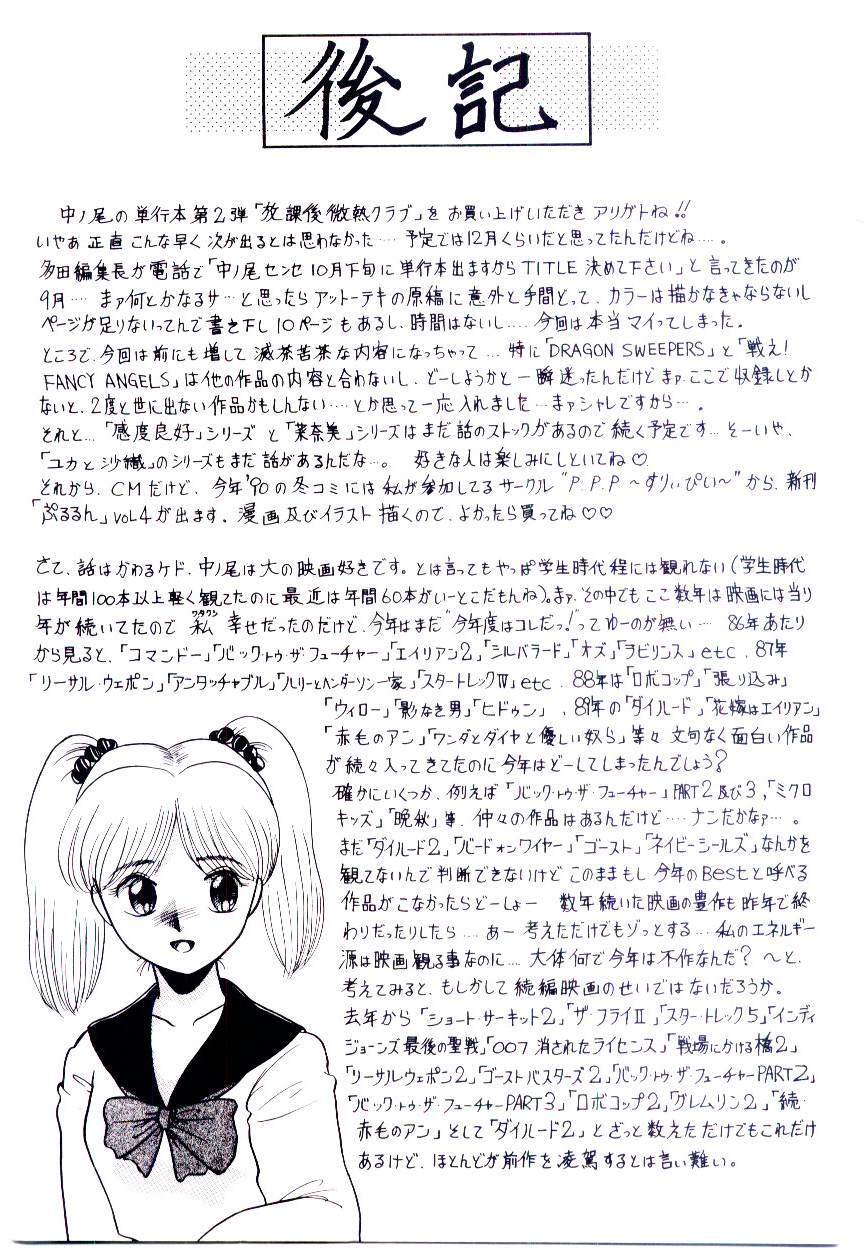 後記
中ノ尾の単行本第2弾「放課後微熱クラブ」をお買い上げいただきアリガトね!!
いやあ正直こんな早く次が出るとは思わなかった‥‥予定では12月くらいだと思ってたんだけどね‥‥。
多田編集長が電話で「中ノ尾センセ10月下旬に単行本出ますからTITLE決めて下さい」と言ってきたのが
9月‥‥まァ何とかなるサ‥と思ったらアットーテキの原稿に意外と手間とって、カラーは描かなきゃならないし
ページが足りないってんで書き下し10ページもあるし、時間はないし‥‥今回は本当マイってしまった。
ところで、今回は前にも増して滅茶苦茶な内容になっちゃって…特に「DRAGON SWEEPERS」と「戦え!
FANCY ANGELS」は他の作品の内容と合わないし、どーしようかと一瞬迷ったんだけどまァここで収録しとか
ないと、2度と世に出ない作品かもしんない‥‥とか思って一応入れました…まァシャレですから…。
それと…「感度良好」シリーズと「茉奈美」シリーズはまだ話のストックがあるので続く予定です…そーいや、
「ユカと沙織」のシリーズもまだ話があるんだな…。 好きな人は楽しみにしといてね♡
それから、CMだけど、今年'90の冬コミには私が参加してるサークル“P.P.P〜すりぃぴぃ〜”から、新刊
「ぷるるん」VOL4が出ます。漫画及びイラスト描くので、よかったら買ってね♡♡
さて、話はかわるケド、中ノ尾は大の映画好きです。とは言ってもやっぱ学生時代程には観れない(学生時代
は年間100本以上軽く観てたのに最近は年間60本がいーとこだもんね)。まァ、その中でもここ数年は映画には当り
年が続いてたので私ワタクシ幸せだったのだけど、今年はまだ“今年度はコレだっ!”ってゆーのが無い…86年あたり
から見ると、「コマンドー」「バック・トゥ・ザ・フューチャー」「エイリアン2」「シルバラード」「オズ」「ラビリンス」etc、87年
「リーサル・ウェポン」「アンタッチャブル」「ハリーとヘンダーソン一家」「スタートレックⅣ」etc、88年は「ロボコップ」「張り込み」
「ウィロー」「影なき男」「ヒドゥン」、89年の「ダイ・ハード」「花嫁はエイリアン」
「赤毛のアン」「ワンダとダイヤと優しい奴ら」等々文句なく面白い作品
が続々入ってきてたのに今年はどーしてしまったんでしょう?
確かにいくつか、例えば「バック・トゥ・ザ・フューチャー」PART2及び3,「ミクロ
キッズ」「晩秋」等、仲々の作品はあるんだけど‥‥ナンだかなァ…。
まだ「ダイ・ハード2」「バードオンワイヤー」「ゴースト」「ネイビーシールズ」なんかを
観てないんで判断できないけどこのままもし今年のBestと呼べる
作品がこなかったらどーしょー 数年続いた映画の豊作も昨年で終
わりだったりしたら‥‥あー考えただけでもゾッとする‥‥私のエネルギー
源は映画観る事なのに‥‥大体何で今年は不作なんだ?〜と、
考えてみると、もしかして続編映画のせいではないだろうか。
去年から「ショート・サーキット2」「ザ・フライⅡ」「スター・トレック5」「インディ
ジョーンズ最後の聖戦」「007消されたライセンス」「戦場にかける橋2」
「リーサルウェポン2」「ゴーストバスターズ2」「バック・トゥ・ザ・フューチャーPART2」
「バック・トゥ・ザ・フューチャーPART3」「ロボコップ2」「グレムリン2」「続・
赤毛のアン」そして「ダイ・ハード2」とざっと数えただけでもこれだけ
あるけど、ほとんどが前作を凌駕するとは言い難い。